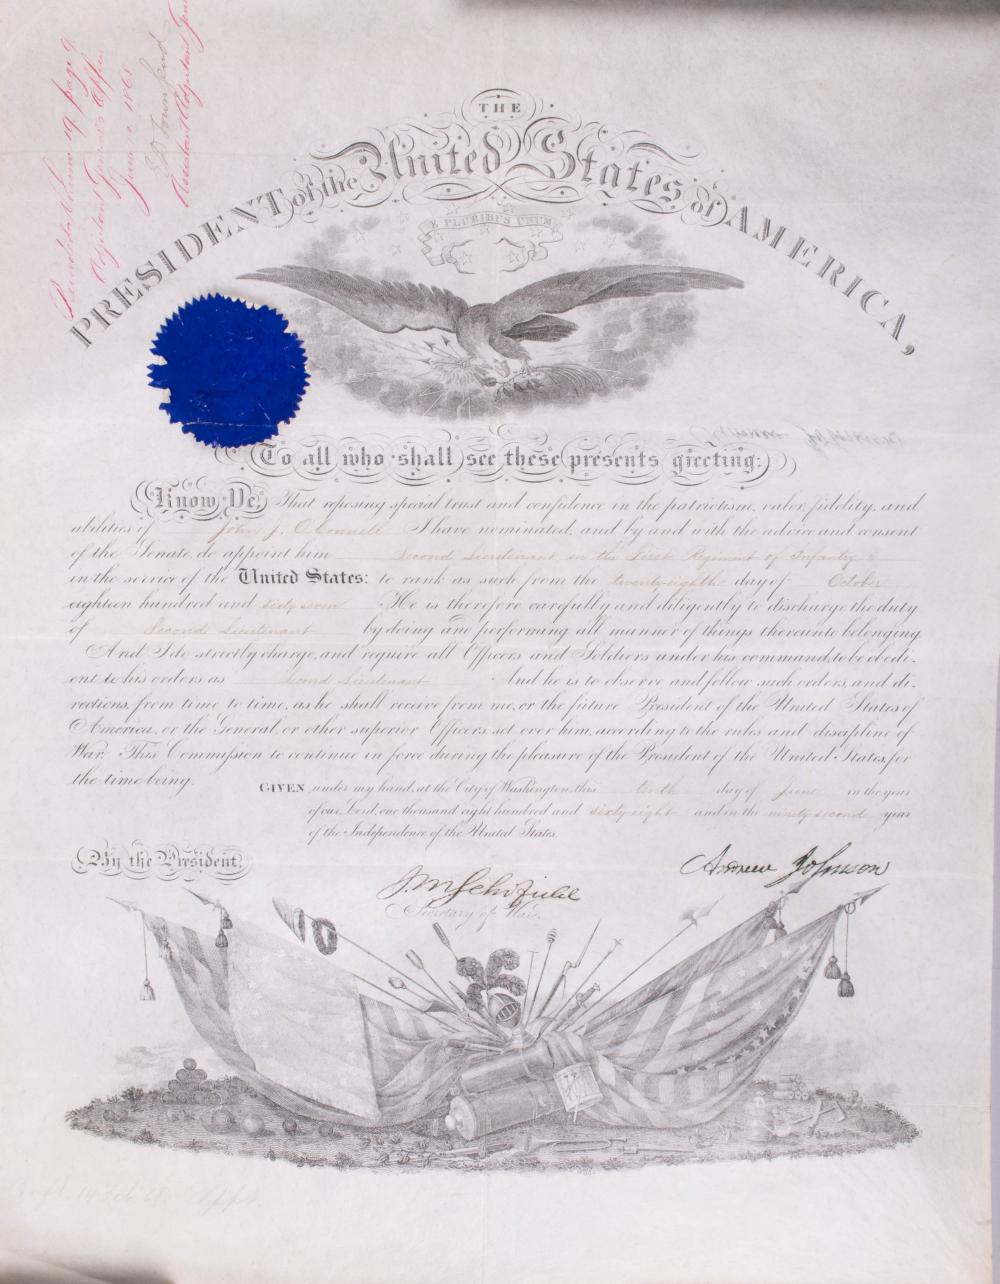 THE
PRESIDENT of the United States of AMERICA,
E PLURIBUS UNUM
Adjutant General's Office
June 12 1868
E D Townsend
Assistant Adjutant General
To all who shall see these presents greeting:
Know Ye, That reposing special trust and confidence in the patriotism, valor, fidelity, and
abilities of John J. O'Connell I have nominated, and by and with the advice and consent
of the Senate, do appoint him Second Lieutenant in the First Regiment of Infantry
in the service of the United States: to rank as such from the twenty-eighth day of October
eighteen hundred and sixty-seven He is therefore carefully and diligently to discharge the duty
of Second Lieutenant by doing and performing all manner of things thereunto belonging.
And I do strictly charge, and require all Officers and Soldiers under his command, to be obedi-
ent to his orders as Second Lieutenant And he is to observe and follow such orders, and di-
rections, from time to time, as he shall receive from me, or the future President of the United States of
America, or the General, or other superior Officers set over him, according to the rules and discipline of
War. This Commission to continue in force during the pleasure of the President of the United States, for
the time being.
GIVEN under my hand, at the City of Washington, this tenth day of June in the year
of our Lord, one thousand eight hundred and sixty-eight and in the ninety-second year
of the Independence of the United States.
By the President,
Andrew Johnson
J M Schofield
Secretary of War.